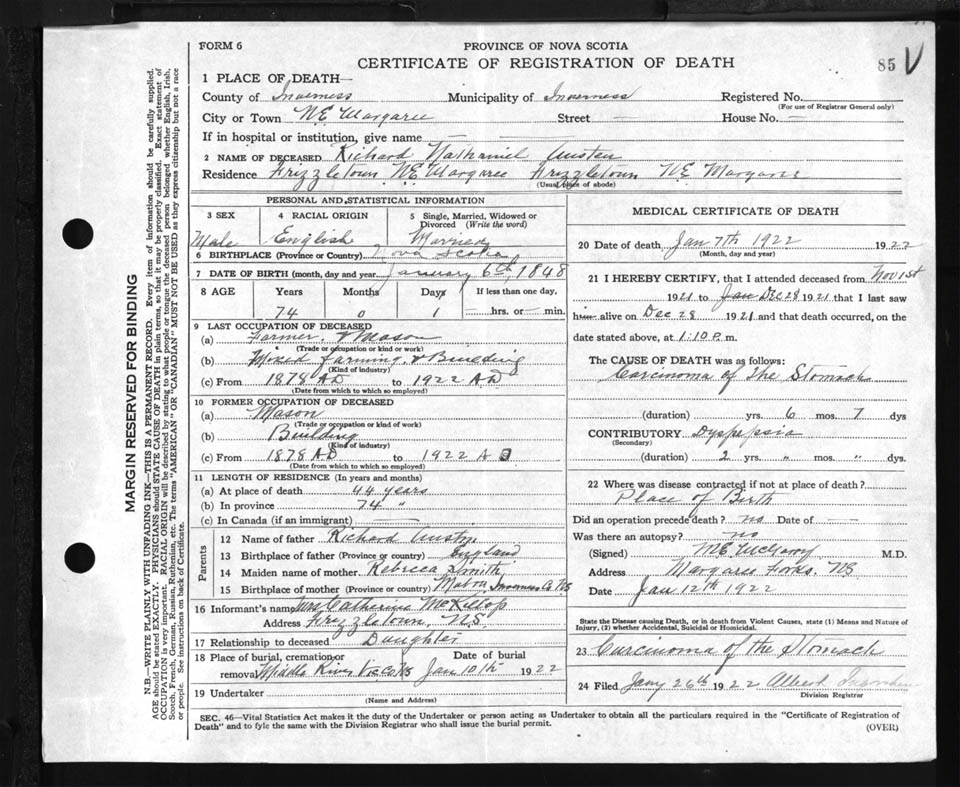 FORM 6
PROVINCE OF NOVA SCOTIA
CERTIFICATE OF REGISTRATION OF DEATH
85 V
1 PLACE OF DEATH—
County of Inverness Municipality of Inverness Registered No.
(For use of Registrar General only)
City or Town N.E. Margaree Street — House No. —
If in hospital or institution, give name —
2 NAME OF DECEASED Richard Nathaniel Austen
Residence Frizzletown N.E. Margaree Frizzletown N.E. Margaree
(Usual place of abode)
PERSONAL AND STATISTICAL INFORMATION
3 SEX 4 RACIAL ORIGIN 5 Single, Married, Widowed or Divorced (Write the word)
Male English Married
6 BIRTHPLACE (Province or Country) Nova Scotia
7 DATE OF BIRTH (month, day and year) January 6th 1848
8 AGE Years Months Days If less than one day,
74 0 1 hrs. or min.
9 LAST OCCUPATION OF DECEASED
(a) Farmer & Mason
(Trade or occupation or kind or work)
(b) Mixed Farming & Building
(Kind of industry)
(c) From 1878 AD to 1922 AD
(Date from which to which so employed)
10 FORMER OCCUPATION OF DECEASED
(a) Mason
(Trade or occupation or kind of work)
(b) Building
(Kind of industry)
(c) From 1878 AD to 1922 A D
(Date from which to which so employed)
11 LENGTH OF RESIDENCE (In years and months)
(a) At place of death 44 years
(b) In province 74 "
(c) In Canada (if an immigrant) —
Parents
12 Name of father Richard
13 Birthplace of father (Province or country) England
14 Maiden name of mother Rebecca Smith
15 Birthplace of mother (Province or country) Mabou Inverness Co NS
16 Informant's name Mrs Catherine McKillop
Address Frizzletown, N.S.
17 Relationship to deceased Daughter
18 Place of burial, cremation or removal Date of burial
Middle River Vic Co NS Jan 10th 1922
19 Undertaker
(Name and Address)
MEDICAL CERTIFICATE OF DEATH
20 Date of death Jan 7th 1922 1922
(Month, day and year)
21 I HEREBY CERTIFY, that I attended deceased from Nov 1st
1921 to Jan Dec 28 1921 that I last saw
him alive on Dec 28 1921 and that death occurred, on the
date stated above, at 1:10 P. m.
The CAUSE OF DEATH was as follows:
Carcinoma of The Stomach
(duration) yrs. 6 mos. 7 dys
CONTRIBUTORY Dyspepsia
(Secondary)
(duration) 2 yrs. " mos. " dys.
22 Where was disease contracted if not at place of death?
Place of Birth
Did an operation precede death? no Date of —
Was there an autopsy? no
(Signed) M.E. McGarry M.D.
Address Margaree Forks. NS
Date Jan 12th 1922
State the Disease causing Death, or in death from Violent Causes, state (1) Means and Nature of
Injury, (2) whether Accidental, Suicidal or Homicidal.
23 Carcinoma of the Stomach
24 Filed Jany 26th 1922 Albert
Division Registrar
SEC. 46—Vital Statistics Act makes it the duty of the Undertaker or person acting as Undertaker to obtain all the particulars required in the "Certificate of Registration of
Death" and to fyle the same with the Division Registrar who shall issue the burial permit. (OVER)
MARGIN RESERVED FOR BINDING
N.B.—WRITE PLAINLY WITH UNFADING INK—THIS IS A PERMANENT RECORD. Every item of information should be carefully supplied.
AGE should be stated EXACTLY. PHYSICIANS should STATE CAUSE OF DEATH in plain terms, so that it may be properly classified. Exact statement of
OCCUPATION is very important. RACIAL ORIGIN will be described by stating to what people or tongue the deceased person belonged whether English, Irish,
Scotch, French, German, Russian, Ruthenian, etc. The terms "AMERICAN" OR "CANADIAN" MUST NOT BE USED as they express citizenship but not a race
or people. See instructions on back of Certificate.